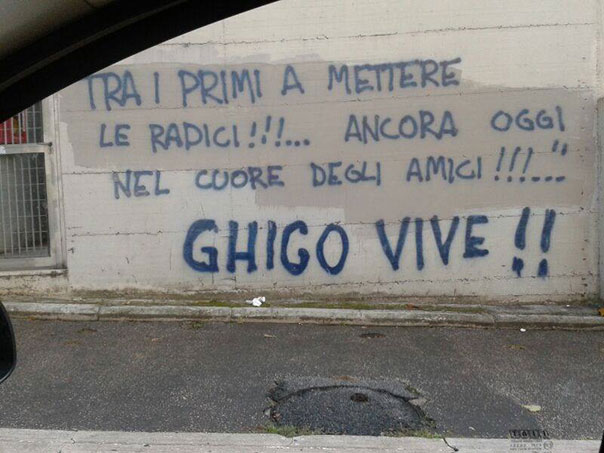 TRA I PRIMI A METTERE
LE RADICI!!!... ANCORA OGGI
NEL CUORE DEGLI AMICI!!!..."
GHIGO VIVE!!